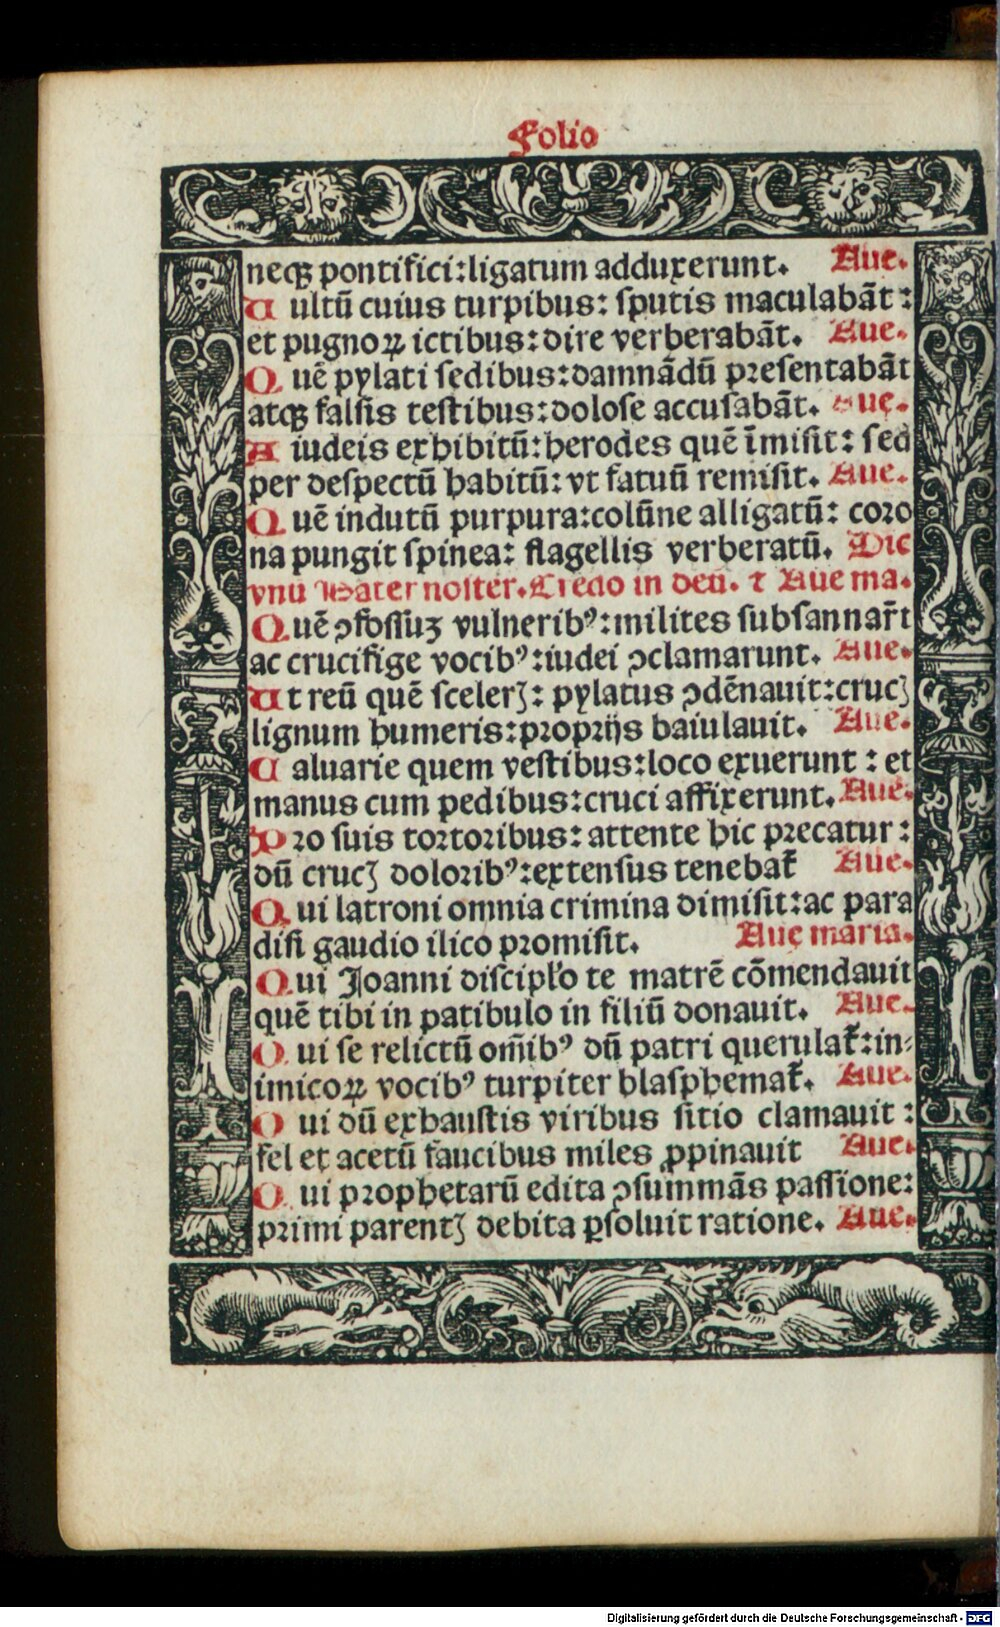 Folio
neqꝫ pontifici: ligatum adduxerunt. Aue.
Uultū cuius turpibus: sputis maculabāt:
et pugnoꝝ ictibus: dire verberabāt. Aue.
Quē pylati sedibus: damnādū presentabāt
atqꝫ falsis testibus: dolose accusabāt. Aue.
A iudeis exhibitū: herodes quē īmisit: sed
per despectū habitū: vt fatuū remisit. Aue.
Quē indutū purpura: colūne alligatū: coro
na pungit spinea: flagellis verberatū. Dic
vnū Pater noster. Credo in deū. ⁊ Aue ma.
Quē ꝯfossuꝫ vulneribꝰ: milites subsannar̄t
ac crucifige vocibꝰ: iudei ꝯclamarunt. Aue.
Ut reū quē scelerꝭ: pylatus ꝯdēnauit: crucꝭ
lignum humeris: proprijs baiulauit. Aue.
Caluarie quem vestibus: loco exuerunt: et
manus cum pedibus: cruci affixerunt. Aue.
Pro suis tortoribus: attente hic precatur:
dū crucꝭ doloribꝰ: extensus tenebat̄ Aue.
Qui latroni omnia crimina dimisit: ac para
disi gaudio ilico promisit. Aue maria.
Qui Joanni discipło te matrē cōmendauit
quē tibi in patibulo in filiū donauit. Aue.
Qui se relictū om̄ibꝰ dū patri querulat̄: in-
imicoꝝ vocibꝰ turpiter blasphemat̄. Aue.
Qui dū exhaustis viribus sitio clamauit:
fel et acetū faucibus miles ꝓpinauit Aue.
Qui prophetarū edita ꝯsummās passione:
primi parentꝭ debita ꝑsoluit ratione. Aue.
Digitalisierung gefördert durch die Deutsche Forschungsgemeinschaft - DFG